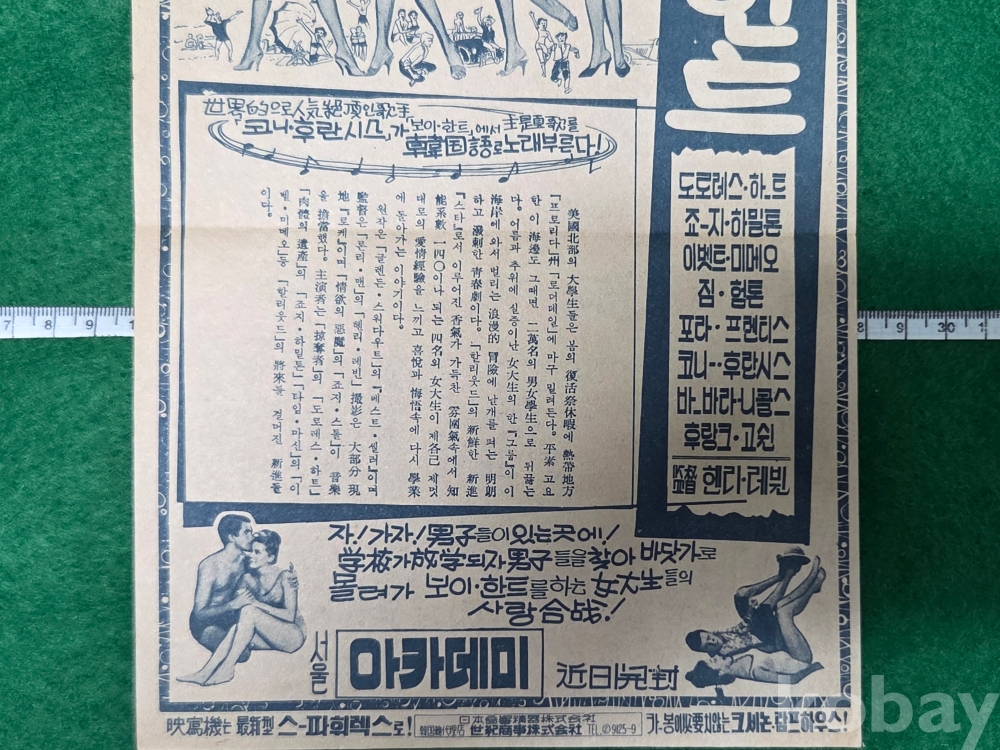 헌트
世界的으로 人気絕頂인 歌手
「코니·후란시스」가 「보이·헌트」에서 主題歌를
韓国語로 노래부른다!
美國北部의 大學生들은 봄의 復活祭休暇에 熱帶地方
「프로리다」州 「로더데일」에 마구 밀려든다. 平素 고요
한 이 海邊도 그때면 二萬名의 男女學生으로 뒤끓는
다. 어름과 추위에 실증이난 女大生의 한 「그룹」이 이
海岸에 와서 벌리는 浪漫的 冒險에 난개를 펴는 明朗
하고 潑剌한 青春劇이다. 「할리웃드」의 新鮮한 新進
「스타」로서 이루어진 香氣가 가득찬 雰圍氣속에서 知
能系數 一四〇이나 되는 四名의 女大生이 제各己 제멋
대로의 愛情經驗을 느끼고 喜悅과 悔悟속에 다시 學業
에 돌아가는 이야기이다.
원작은 「글렌든·스워다우트」의 「베스트·셀러」이며
監督은 「론리·맨」의 「헨리·레빈」 撮影은 大部分 現
地「로케」이며 「情欲의 惡魔」의 「죠지·스톨」이 音樂
을 擔當했다. 主演者는 「掠奪者」의 「도로레스·하트」
「肉體의 遺產」의 「죠지·하밀톤」 「타임·마신」의 「이
벳·미메오」 등 「할리웃드」의 將來를 걸머진 新進들
이다.
도로레스·하ㅡ트
죠-지·하밀톤
이벳트·미메오
짐·헐톤
포라·프렌티스
코니-·후란시스
바-바라·니콜스
후랑크·고쉰
監督 헨리·레빈
자! 가자! 男子들이 있는 곳에!
学校가 放学되자 男子들을 찾아 바닷가로
몰려가 보이·헌트를 하는 女大生들의
사랑合战!
서울 아카데미 近日開封
映寫機는 最新型 스-파휘렉스로!
日本電音精器株式会社
韓国總代理店 世紀商事株式会社 TEL ② 9125-9
카-봉이 必要치않는 크세논·람프하우스!
7 8 9 1
8 9 30 1
kobay